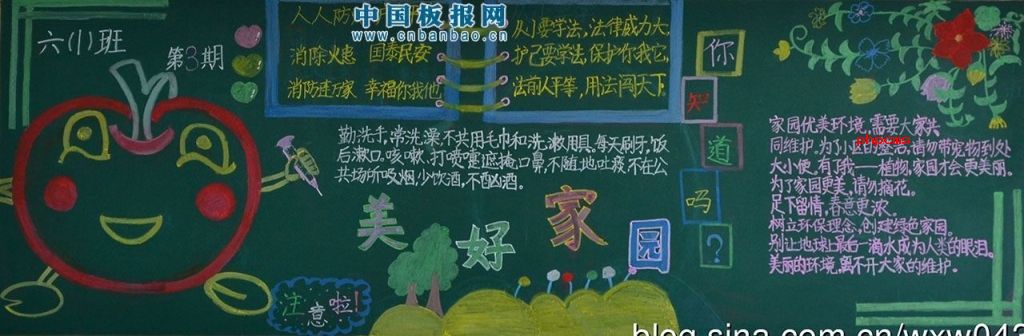 六(1)班
第3期
中国板报网
www.cnbanbao.cn
人人防
消除火患 国泰民安
消防连万家 幸福你我他
从小要学法,法律威力大,
护己要学法,保护你我它,
法前人平等,用法闯天下
你
知
道
吗
?
勤洗手,常洗澡,不共用毛巾和洗漱用具,每天刷牙,饭
后漱口,咳嗽、打喷嚏遮掩口鼻,不随地吐痰,不在公
共场所吸烟,少饮酒,不酗酒。
美好家园
注意啦!
家园优美环境,需要大家共
同维护,为了小区的整洁,请勿带宠物到处
大小便,有了我——植物,家园才会更美丽。
为了家园更美,请勿摘花。
足下留情,春意更浓。
树立环保理念,创建绿色家园。
别让地球上最后一滴水成为人类的眼泪。
美丽的环境,离不开大家的维护。
blog.sina.com.cn/wxw042